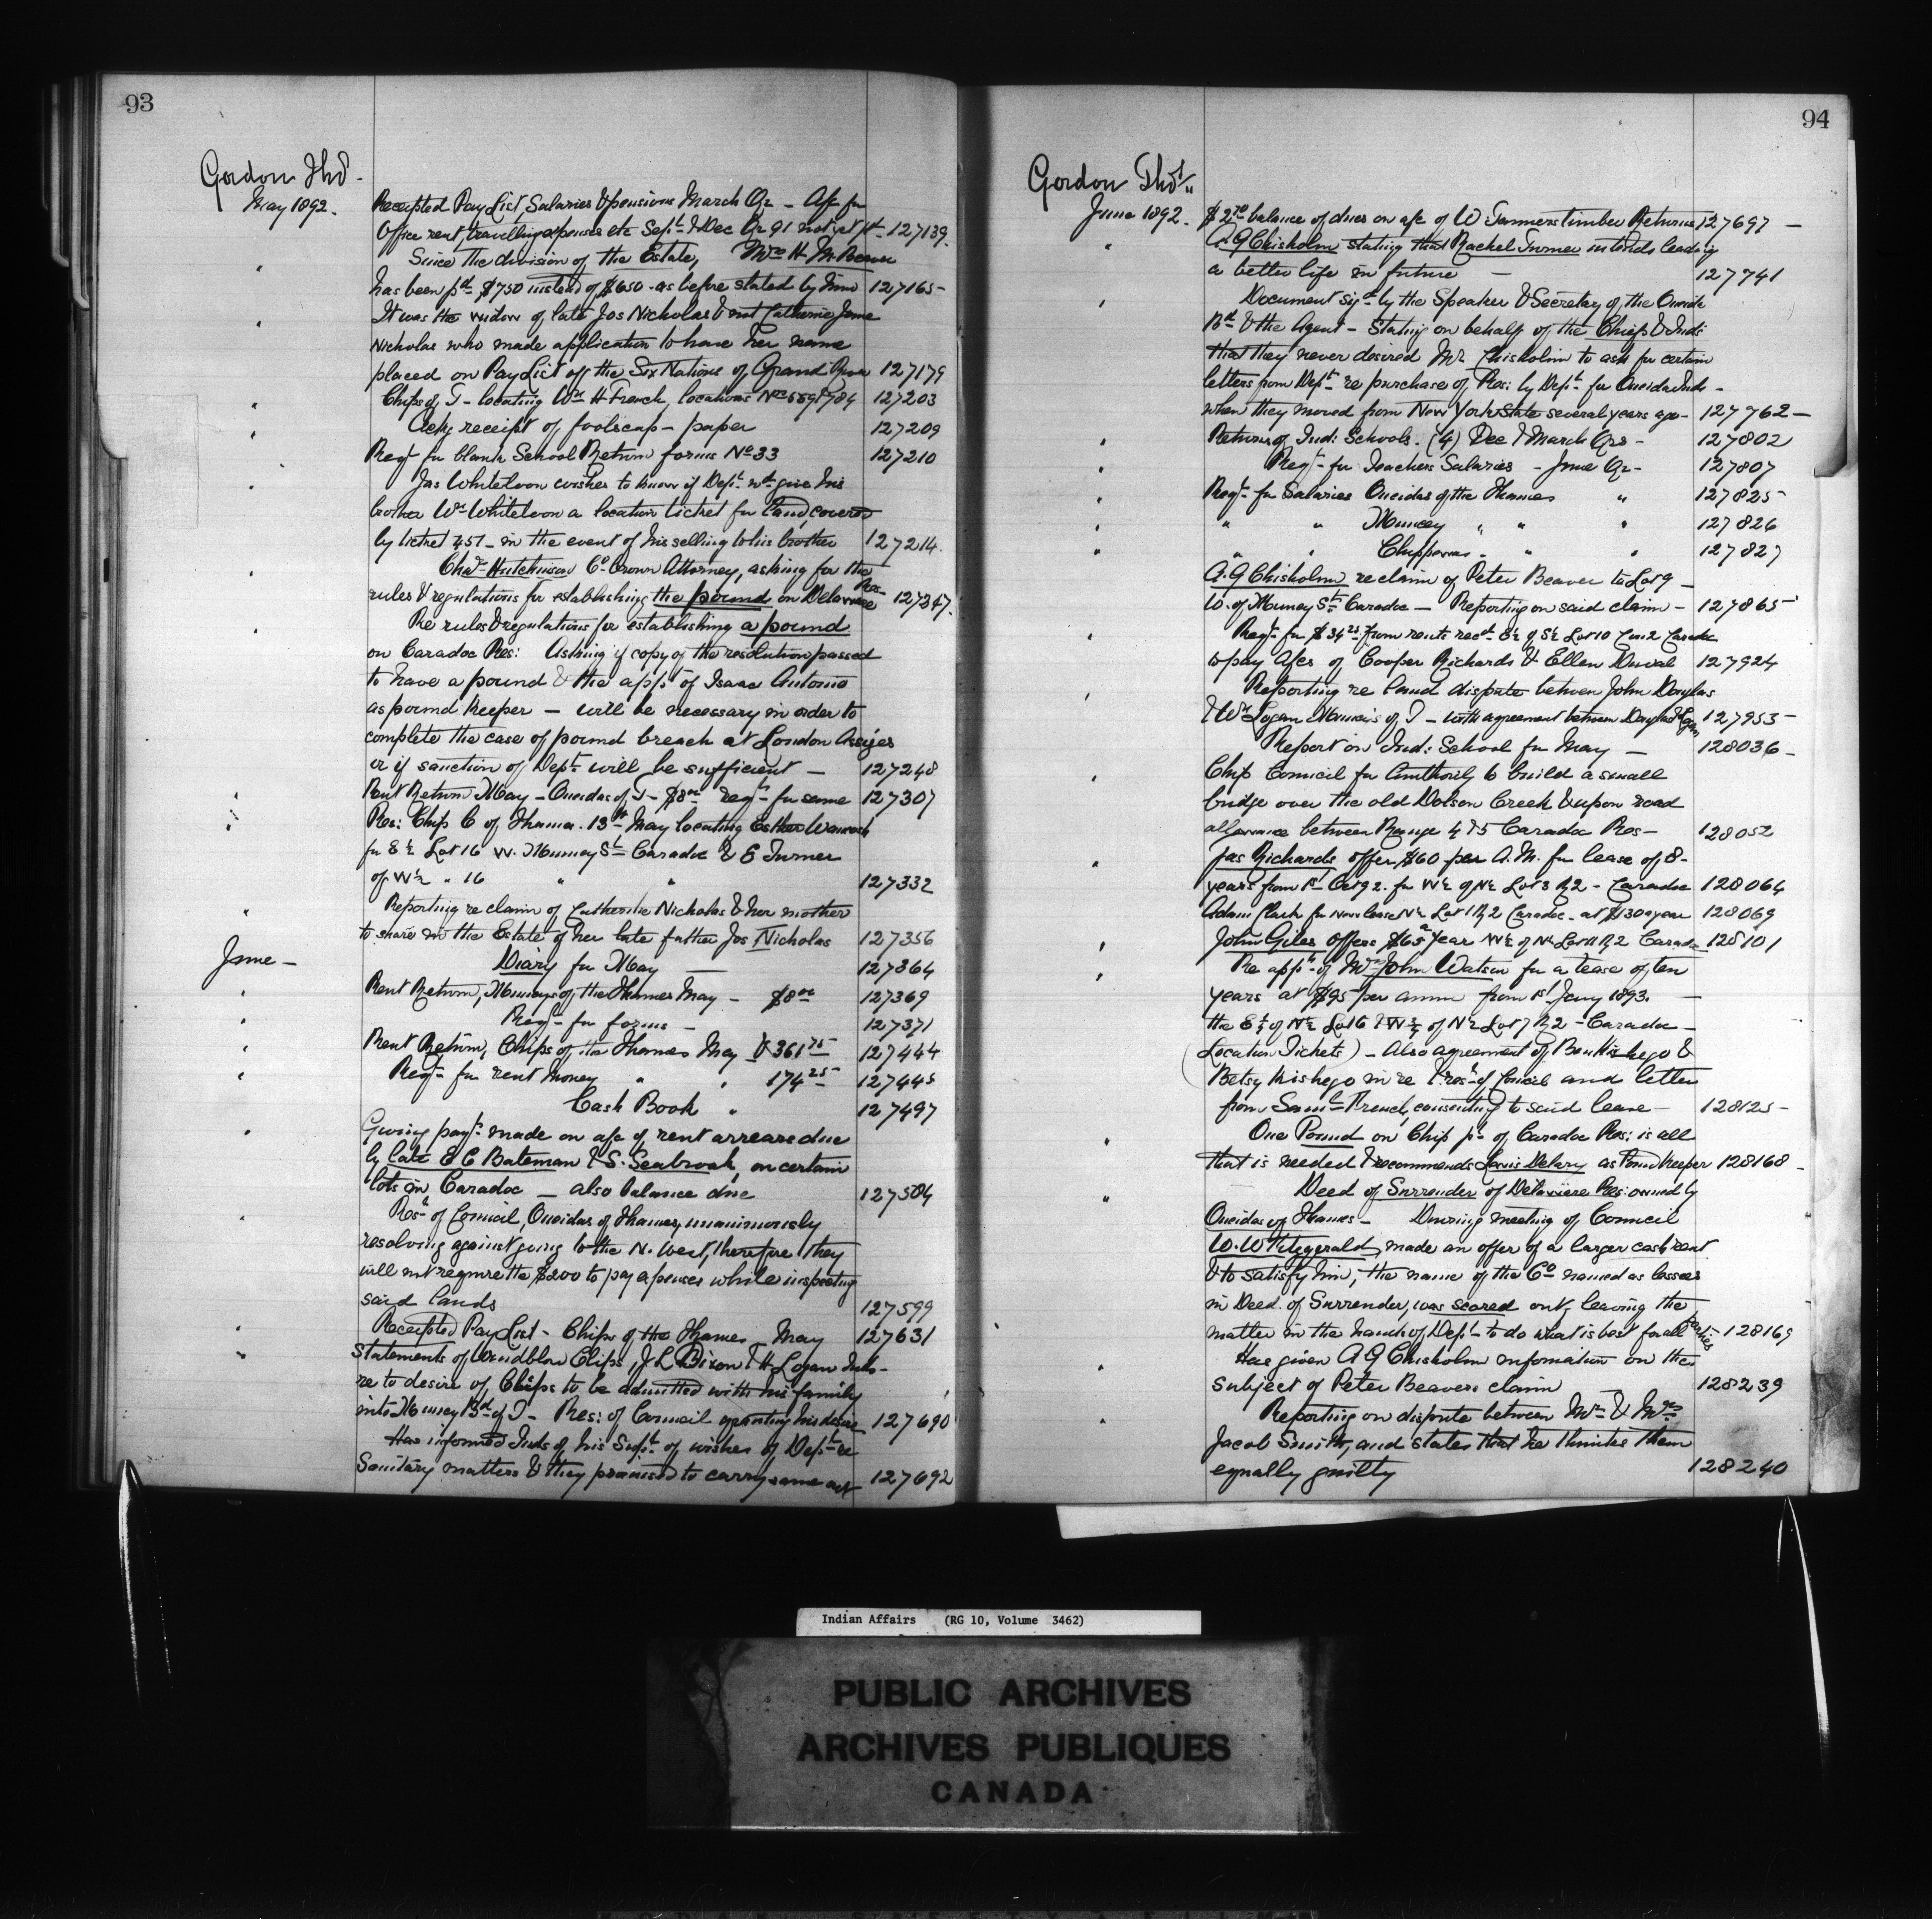 93
Gordon Thos.
May 1892.
Receipted Pay List, Salaries & pensions March Qr - A/c for
Office rent, travelling expenses etc Sept & Dec Qr 91 not yet pd 127139.
Since the division of the Estate, Mrs H. McBeaver
has been pd $750 instead of $650 as before stated by him 127165
It was the widow of late Jos Nicholas & not Catherine Jane
Nicholas who made application to have her name
placed on Pay List off the Six Nations of Grand River 127179
Chips of T - locating Wm H French, locations Nos 559 & 784 127203
Ackg receipt of foolscap - paper 127209
Reqn for blank School Return forms No 33 127210
Jas Whiteloon wishes to know if Dept wd give his
brother Wm Whiteloon a location ticket for land covered
by ticket 451 - in the event of his selling to his brother 127214.
Chas Hutchinson Co Crown Attorney, asking for the
rules & regulations for establishing the pound on Delaware Res- 127247.
Re rules & regulations for establishing a pound
on Caradoc Res: Asking if copy of the resolution passed
to have a pound & the appt of Isaac Antonio
as pound keeper - will be necessary in order to
complete the case of pound breach at London Assizes
or if sanction of Dept will be sufficient - 127248
Rent Return May - Oneidas of T - $8.00 reqn for same 127307
Res: Chip C of Thames. 13th May locating Esther
for E½ Lot 16 W. Muncey St Caradoc & E Turner
of W½ " 16 " " 127332
Reporting re claim of Catherine Nicholas & her mother
to share in the Estate of her late father Jos Nicholas 127356
June -
Diary for May 127364
Rent Return, Munceys of the Thames May - $8.00 127369
Reqn for forms - 127371
Rent Return, Chips of the Thames May $361.75 127444
Reqn for rent money " " 174.25 127445
Cash Book " 127497
Giving payt made on a/c of rent arrears due
by late E C Bateman & S. Seabrook, on certain
lots in Caradoc - also balance due 127504
Resn of Council, Oneidas of Thames, unanimously
resolving against going to the N. West, therefore they
will not require the $200 to pay expenses while inspecting
said lands 127599
Receipted Pay List - Chips of the Thames - May 127631
Statements of Wendblow Chips, J L Dixon & H Logan Inds -
re to desire of Chips to be admitted with his family
into Muncey Bd of T - Res: of Council granting his desire 127690
Has informed Inds of his Supt of wishes of Dept re
Sanitary matters & they promised to carry same out 127692
94
Gordon Thos.
June 1892.
$2.70 balance of dues on a/c of W. Turners timber Returns 127697 -
A. G Chisholm stating that Rachel Turner intends leading
a better life in future - 127741
Document sigd by the Speaker & Secretary of the Oneida
Bd & the Agent - Stating on behalf of the Chiefs & Inds
that they never desired Mr Chisholm to ask for certain
letters from Dept re purchase of Res: by Dept for Oneida Inds -
when they moved from New York State several years ago - 127762 -
Returns of Ind: Schools. (4) Dec & March Qrs - 127802
Reqn for Teachers Salaries - June Qr - 127807
Reqn for Salaries Oneidas of the Thames " 127825
" " Muncey " " " 127826
" " Chippewas " " " 127827
A. G Chisholm re claim of Peter Beaver to Lot 9 -
W. of Muncey St Caradoc - Reporting on said claim - 127865
Reqn for $34.25 from rents recd E½ of S½ Lot 10 Con 2 Caradoc
to pay A/cs of Cooper Richards & Ellen Duval 127924
Reporting re land dispute between John Douglas
& Wm Logan Munceys of T - with agreement between Douglas & Logan 127953 -
Report on Ind: School for May - 128036 -
Chip Council for Authority to build a small
bridge over the old Dolson Creek & upon road
allowance between Range 4 & 5 Caradoc Res - 128052
Jas Richards offer $60 per A.M. for lease of 8-
years from 1st Oct 92. for W½ of N½ Lot 3 R2 - Caradoc 128064
Adam Plank for new lease N½ Lot 1 R2 Caradoc - at $130 a year 128069
John Giles offers $65 a year W½ of N½ Lot 11 R2 Caradoc 128101
Re appn of Mr John Watson for a lease of ten
years at $95 per annum from 1st Jany 1893. -
the E½ of N½ Lot 6 & W¾ of N½ Lot 7 R2 - Caradoc -
(Location Tickets) - Also agreement of Ben Kishego &
Betsy Kishego in re & resn of Council and letter
from Saml French, consenting to said lease - 128125 -
One Pound on Chip pt of Caradoc Res: is all
that is needed & recommends Lewis Delary as Pound Keeper 128168 -
Deed of Surrender of Delaware Res: owned by
Oneidas of Thames - During meeting of Council
W. W Fitzgerald, made an offer of a larger cash rent
& to satisfy him; the name of the Co named as lessees
in Deed of Surrender, was scored out, leaving the
matter in the hands of Dept - to do what is best for all parties 128169
Has given A G Chisholm information on the
subject of Peter Beavers claim - 128239
Reporting on dispute between Mr & Mrs
Jacob Smith, and states that he thinks them
equally guilty 128240
Indian Affairs (RG 10, Volume 3462)
PUBLIC ARCHIVES
ARCHIVES PUBLIQUES
CANADA